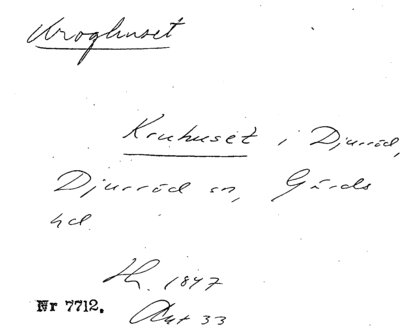 Kroghuset
Kruhuset i Djurröd,
Djurröd sn, Gärds
hd.
Hr. 1847
Nr 7712. Ant 33